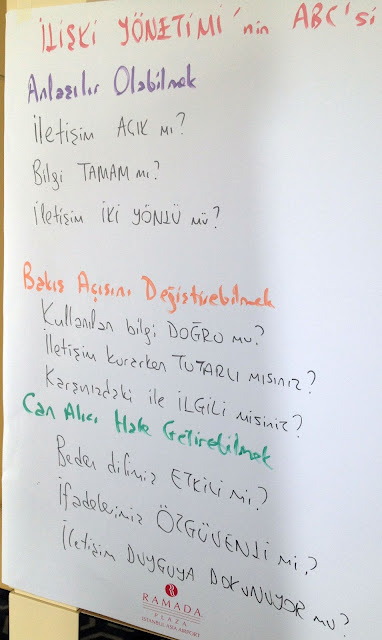 İLİŞKİ YÖNETİMİ'nin ABC'si
Anlaşılır Olabilmek
İletişim AÇIK mı?
Bilgi TAMAM mı?
İletişim İKİ YÖNLÜ mü?
Bakış Açısını Değiştirebilmek
Kullanılan bilgi DOĞRU mu?
İletişim kurarken TUTARLI mısınız?
Karşınızdaki ile İLGİLİ misiniz?
Can Alıcı Hale Getirebilmek
Beden dilimiz ETKİLİ mi?
İfadelerimiz ÖZGÜVENLİ mi?
İletişim DUYGUYA DOKUNUYOR mu?
RAMADA
PLAZA
ISTANBUL ASIA AIRPORT